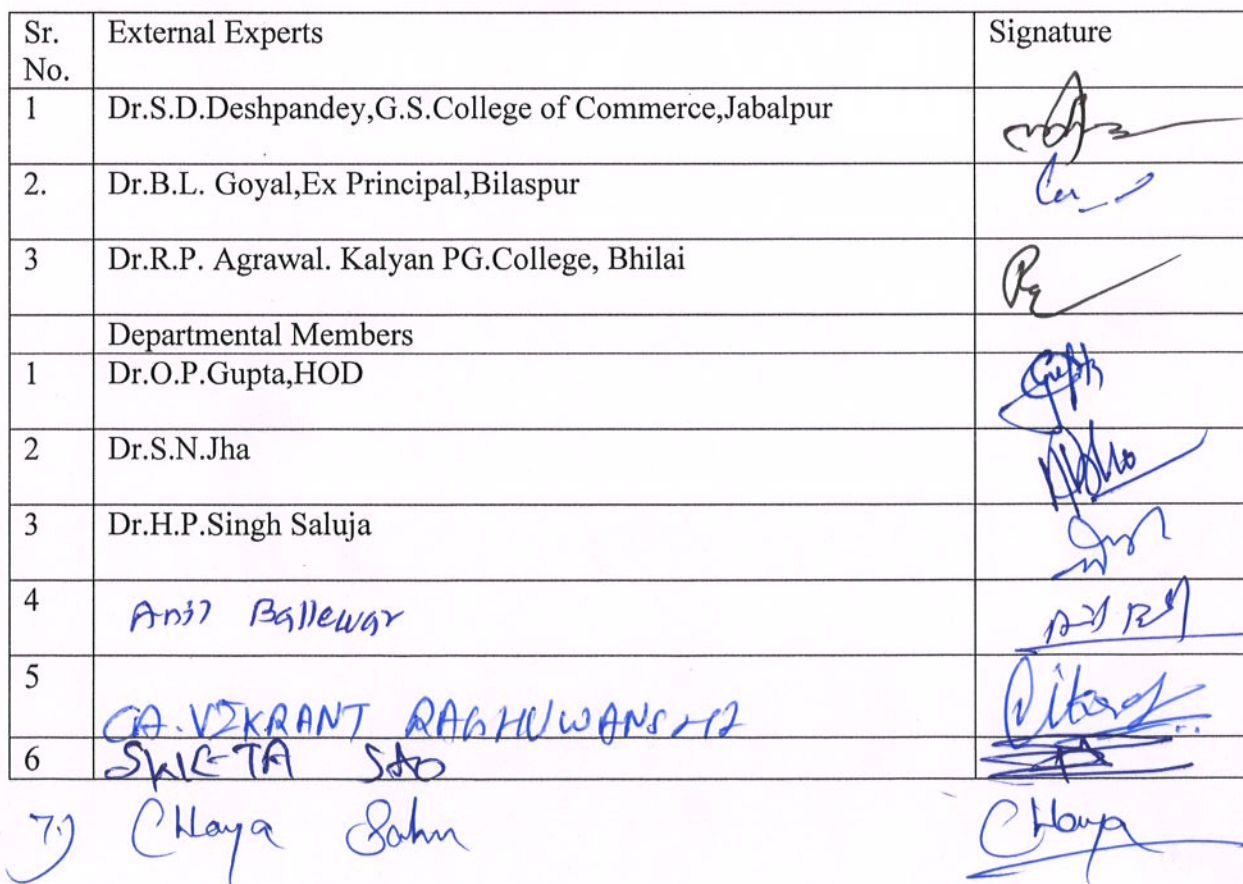 Sr. No. External Experts Signature
1 Dr.S.D.Deshpandey,G.S.College of Commerce,Jabalpur
2. Dr.B.L. Goyal,Ex Principal,Bilaspur
3 Dr.R.P. Agrawal. Kalyan PG.College, Bhilai
Departmental Members
1 Dr.O.P.Gupta,HOD
2 Dr.S.N.Jha
3 Dr.H.P.Singh Saluja
4 Anil Ballewar
5 CA. VIKRANT RAGHUWANSHI
6 SAO
7.) CHaya Sahu CHaya